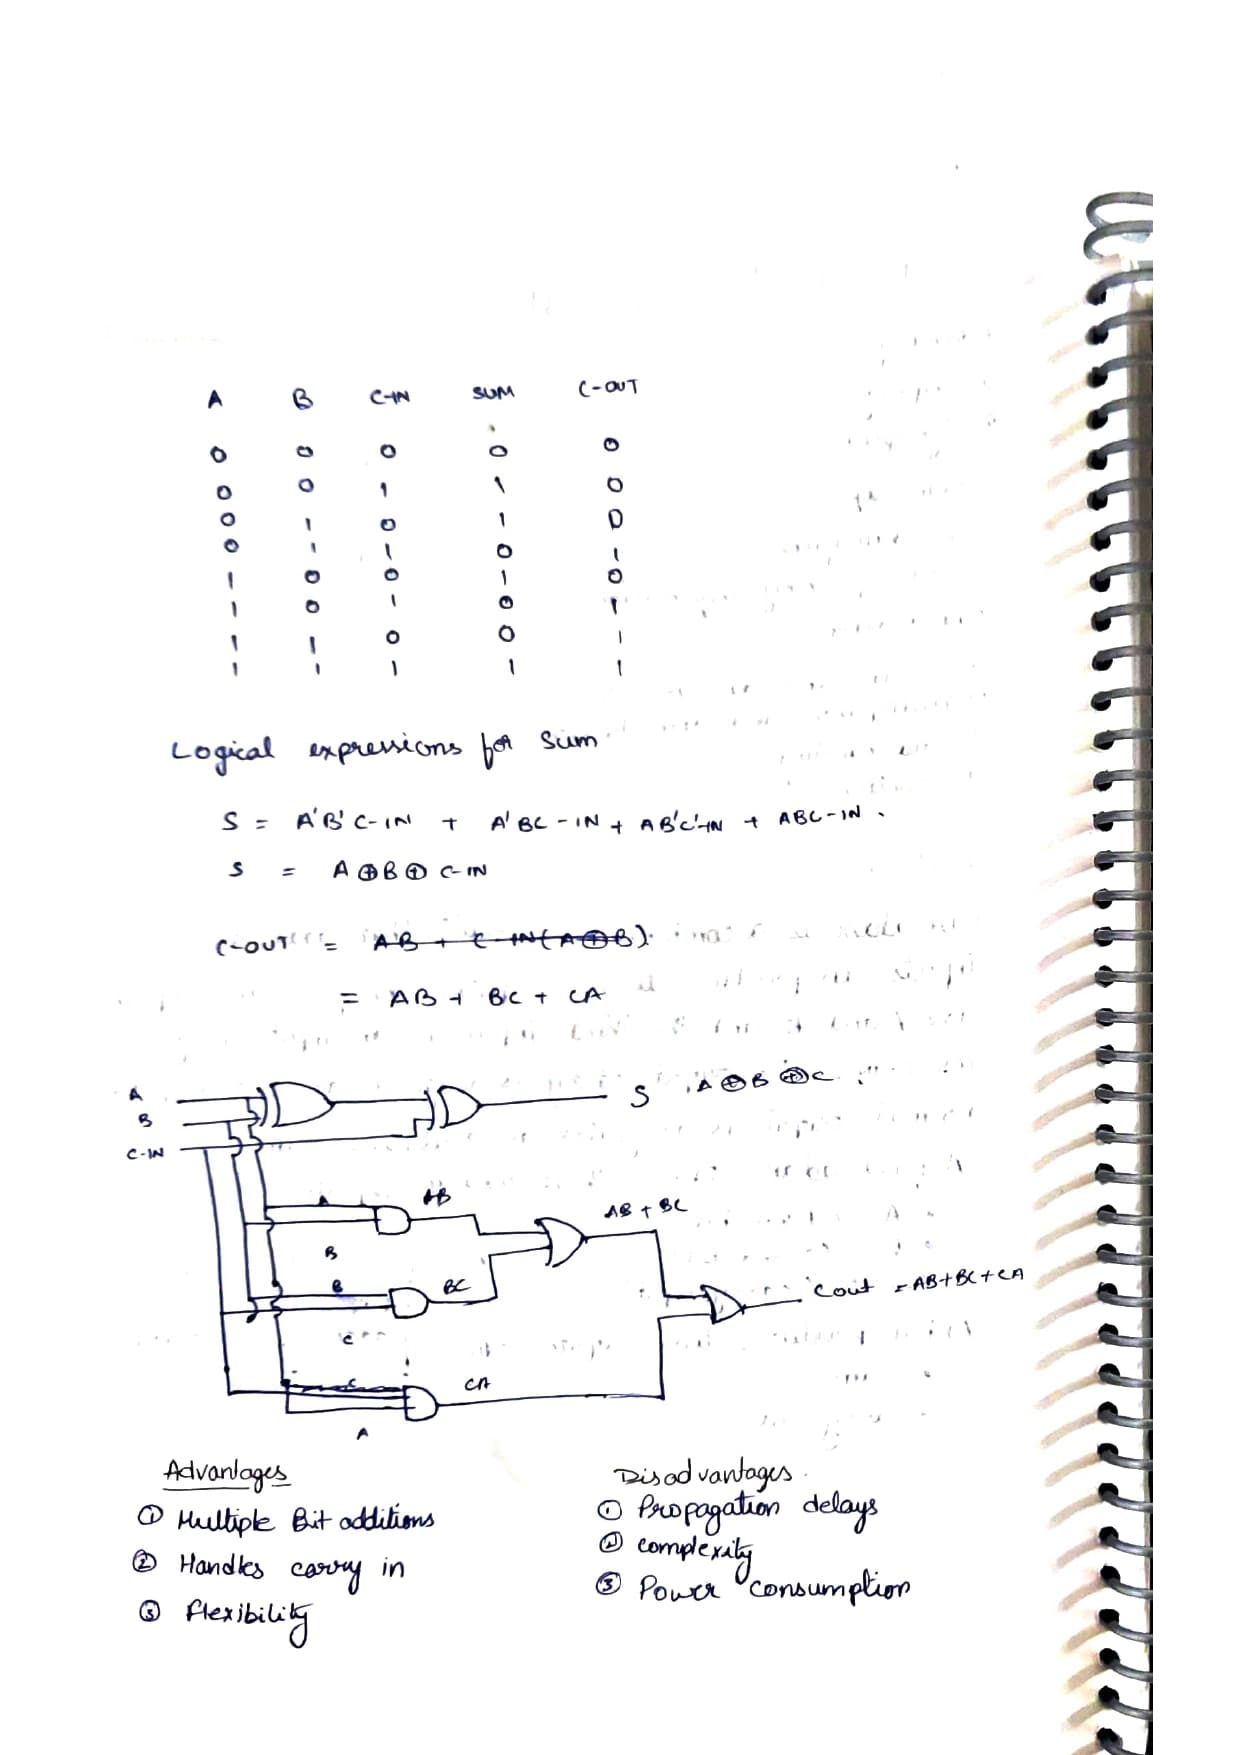 A B C-IN SUM C-OUT
0 0 0 0 0
0 0 1 1 0
0 1 0 1 0
0 1 1 0 1
1 0 0 1 0
1 0 1 0 1
1 1 0 0 1
1 1 1 1 1
Logical expressions for Sum
S = A'B'C-IN + A'BC-IN + AB'C'-IN + ABC-IN.
S = A⊕B⊕C-IN
C-OUT = AB + C-IN(A⊕B)
= AB + BC + CA
A
B
C-IN
S A⊕B⊕C
A AB
B
AB + BC
B BC
C
Cout = AB+BC+CA
C CA
A
Advantages
① Multiple Bit additions
② Handles carry in
③ flexibility
Disadvantages.
① Propagation delays
② complexity
③ Power consumption